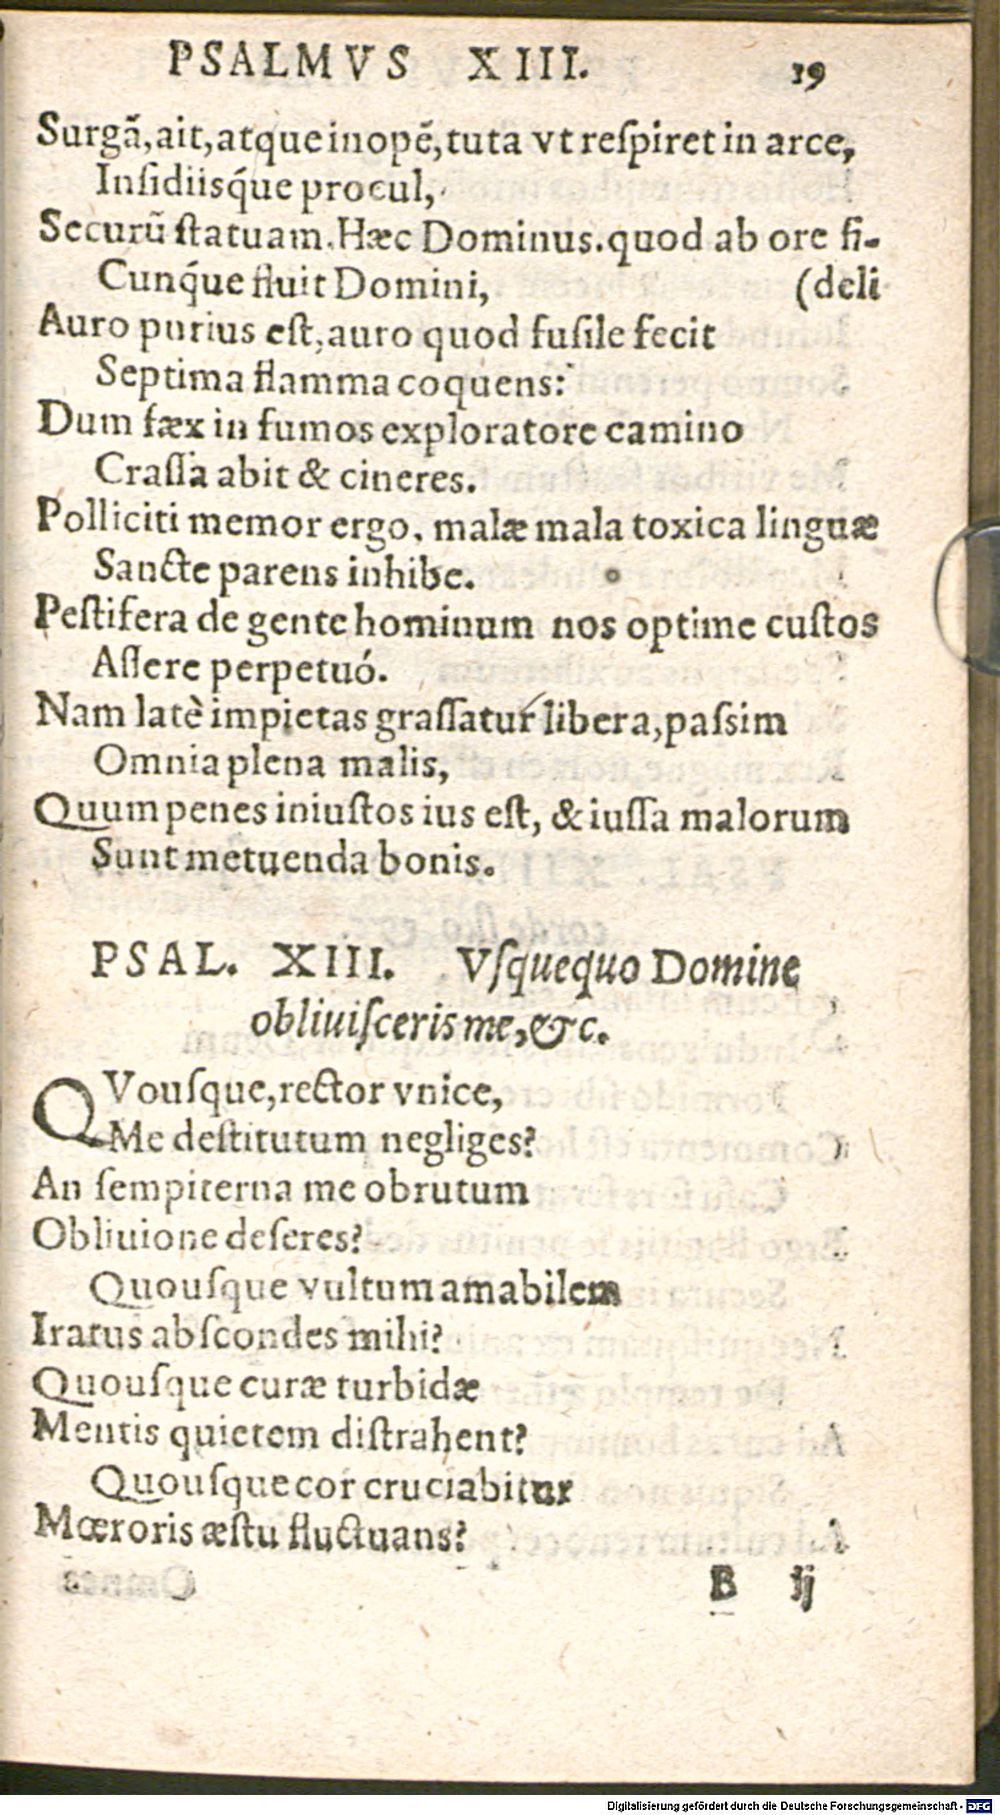 PSALMVS XIII. 19
Surgã, ait, atque inopẽ, tuta vt reſpiret in arce,
Inſidiisq́ue procul,
Securũ ſtatuam. Hæc Dominus. quod ab ore fi-
Cunq́ue fluit Domini, (deli
Auro purius eſt, auro quod fuſile fecit
Septima flamma coquens:
Dum fæx in fumos exploratore camino
Craſſa abit & cineres.
Polliciti memor ergo, malæ mala toxica linguæ
Sancte parens inhibe.
Peſtifera de gente hominum nos optime cuſtos
Aſſere perpetuó.
Nam latè impietas graſſatur libera, paſsim
Omnia plena malis,
Quum penes iniuſtos ius eſt, & iuſſa malorum
Sunt metuenda bonis.
PSAL. XIII. Vſquequo Domine
obliuiſceris me, &c.
QVouſque, rector vnice,
Me deſtitutum negliges?
An ſempiterna me obrutum
Obliuione deſeres?
Quouſque vultum amabilem
Iratus abſcondes mihi?
Quouſque curæ turbidæ
Mentis quietem diſtrahent?
Quouſque cor cruciabitur
Mœroris æſtu fluctuans?
B ij
Digitalisierung gefördert durch die Deutsche Forschungsgemeinschaft - DFG